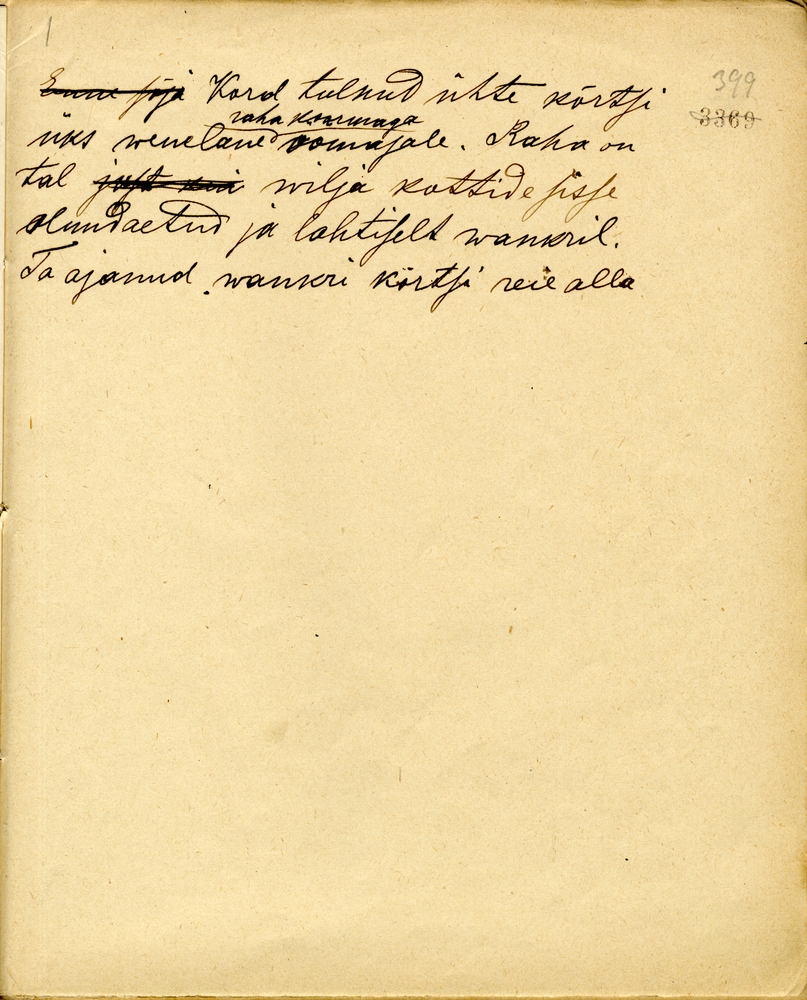 1
399
3369
Enne sõja Kord tulnud ühte kõrtsi
raha koormaga
üks wenelane öömajale. Raha on
tal just kui wilja kottide sisse
aundaetud ja lahtiselt wankril.
Ta ajanud wankri kõrtsi reie alla